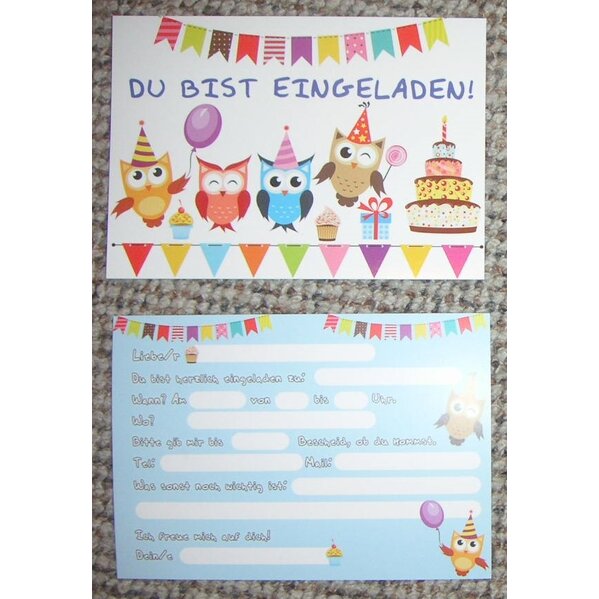 DU BIST EINGELADEN!
Liebe/r
Du bist herzlich eingeladen zu:
Wann? Am von bis Uhr.
Wo?
Bitte gib mir bis Bescheid, ob du kommst.
Tel: Mail:
Was sonst noch wichtig ist:
Ich freue mich auf dich!
Dein/e